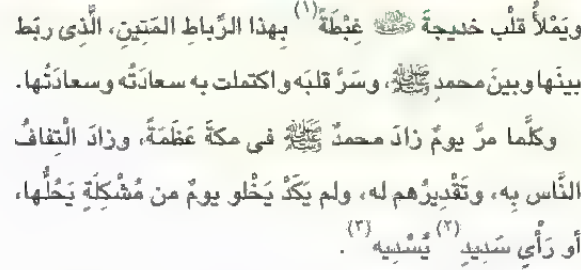 ويَمْلأُ قلْب خديجةَ رضي الله عنها غِبْطَةً(١) بِهذا الرِّباطِ المَتِينِ، الَّذِى ربَط
بينَها وبينَ محمدٍ ﷺ، وسَرَّ قلبَه واكتملت به سعادَتُه وسعادَتُها.
وكلَّما مرَّ يومٌ زادَ محمدٌ ﷺ فى مكةَ عَظَمَةً، وزادَ الْتِفافُ
النَّاس بِه، وتَقْدِيرُهم له، ولم يَكَدْ يَخْلو يومٌ من مُشْكِلَةٍ يَحُلُّها،
أو رَأْىٍ سَدِيدٍ(٢) يُسْدِيه(٣).